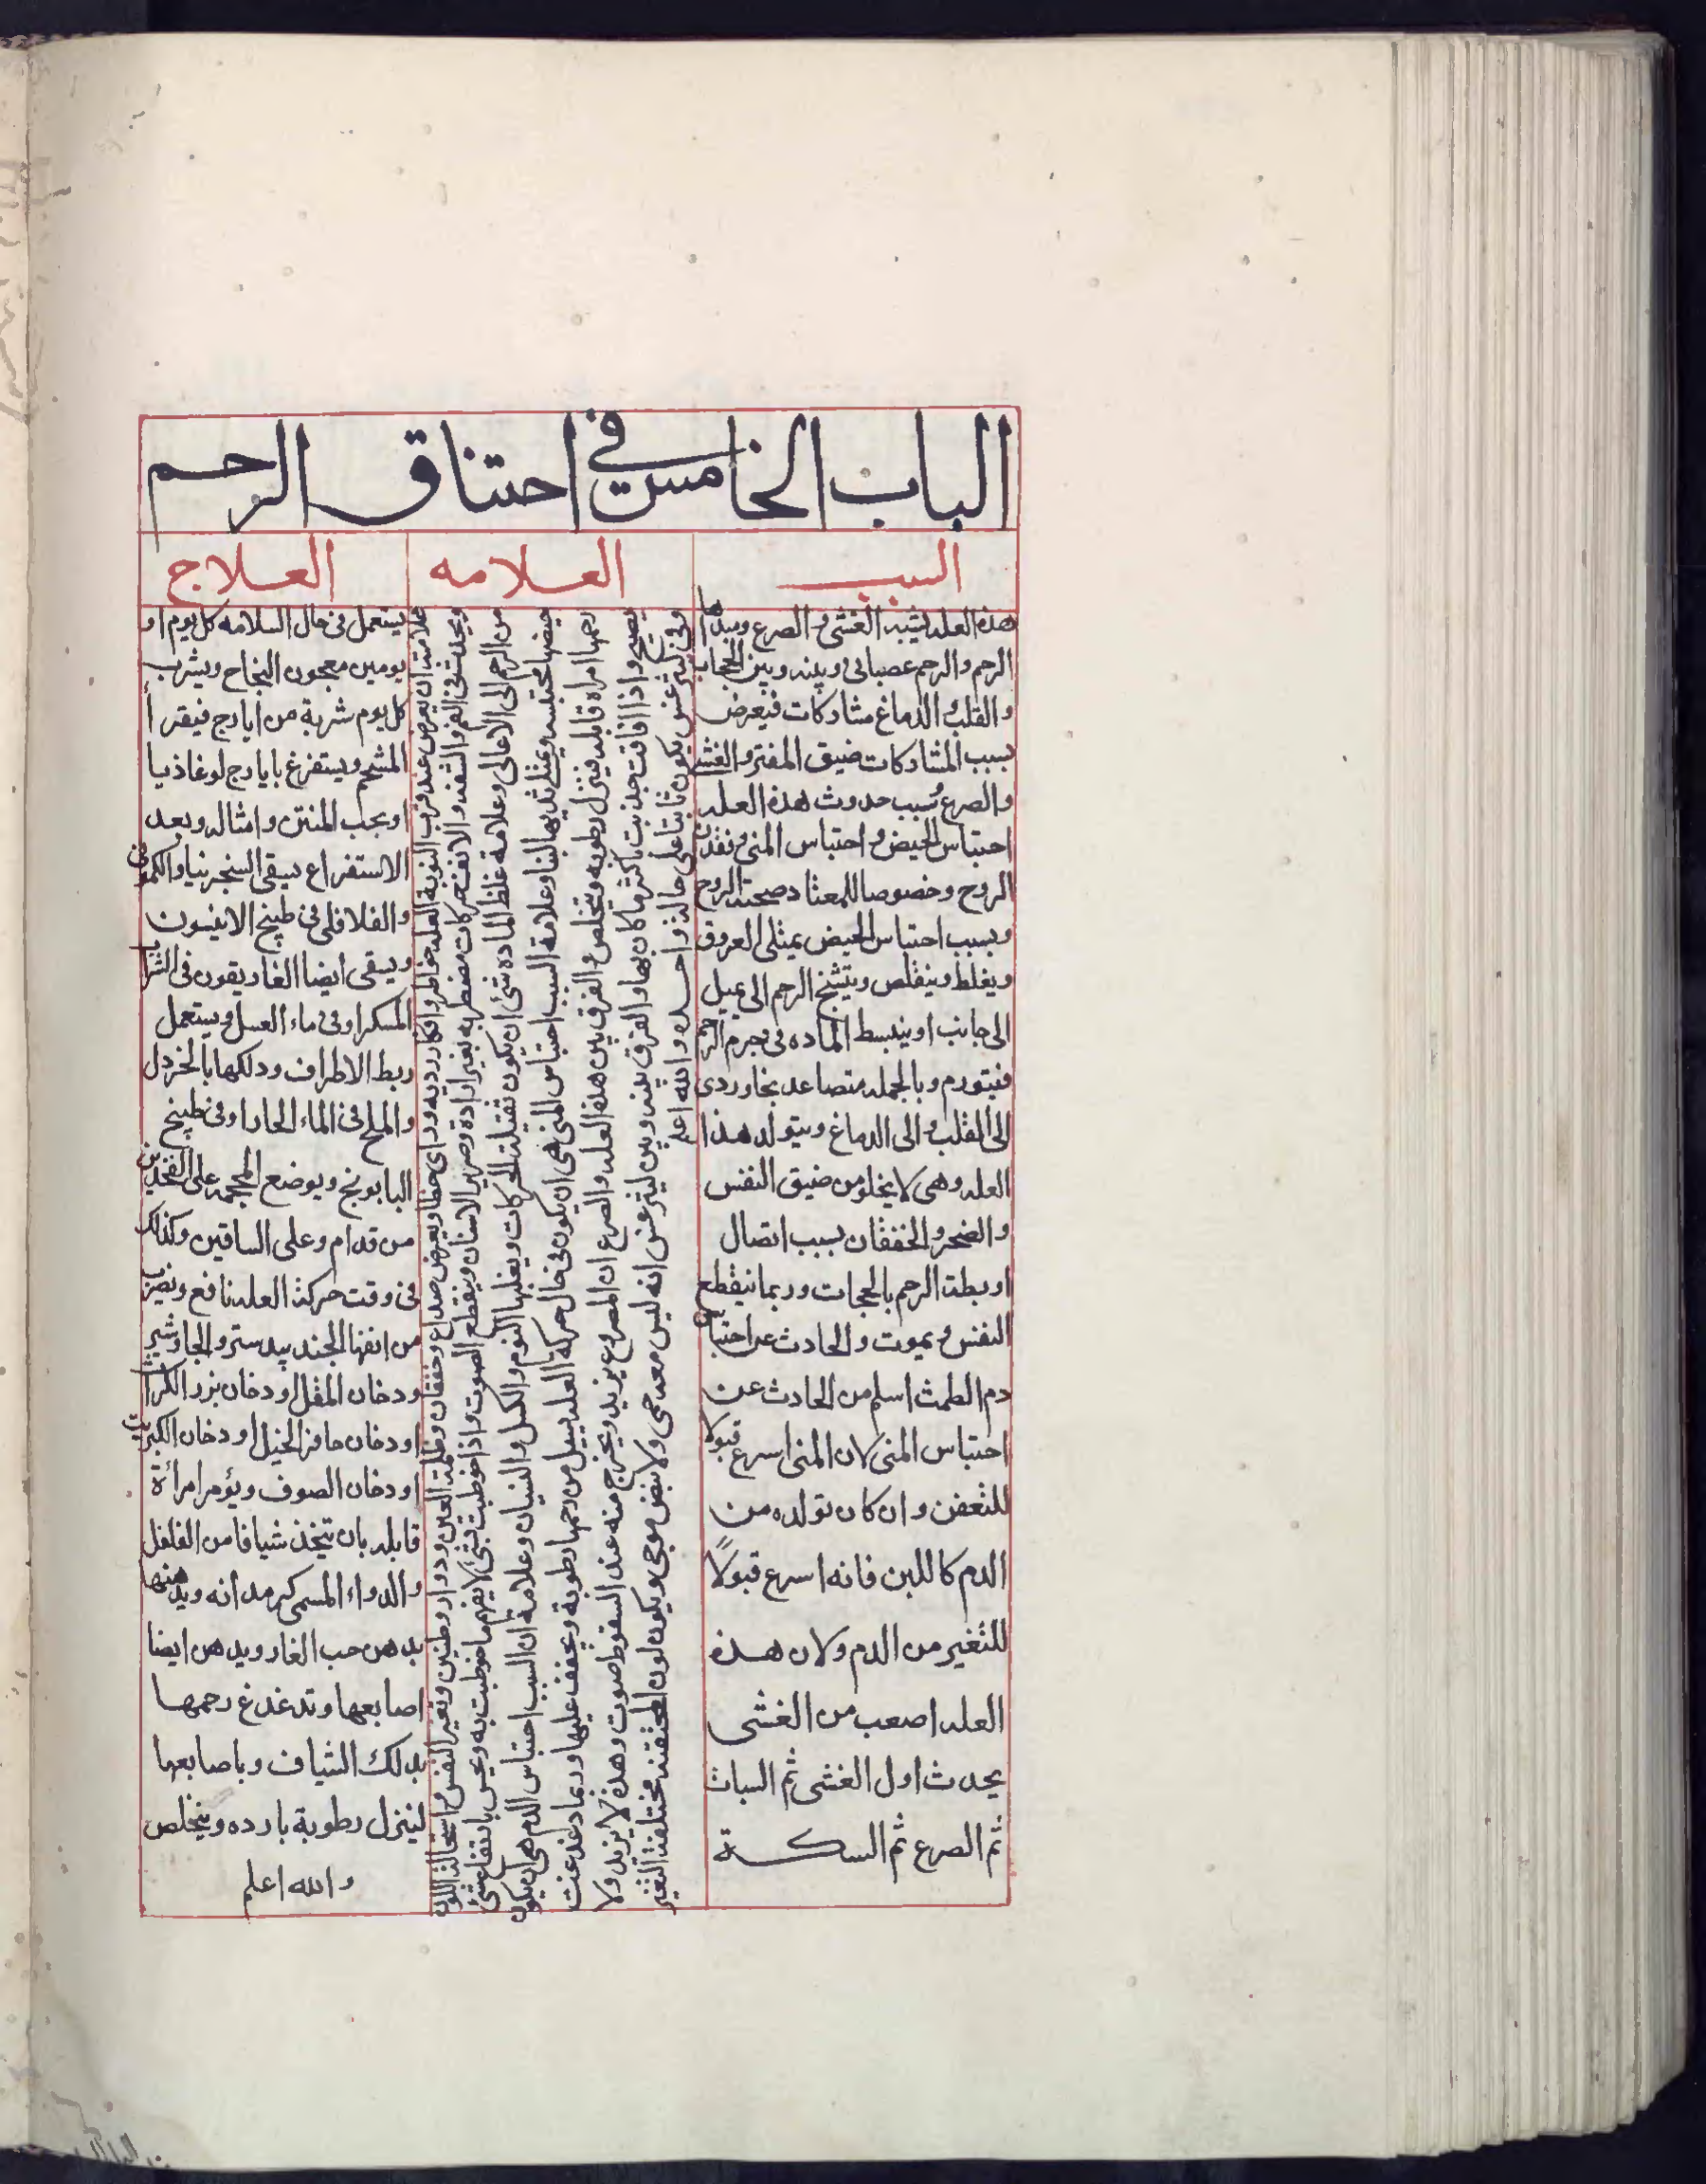 الباب الخامس في احتناق الرحم
السبب
العلامه
العلاج
هذه العله تشبه الغشى و الصرع ومبداها
الرحم والرحم عصبانى وبينه وبين الحجاب
والقلب والدماغ مشاركات فيعرض
بسبب المشاركات ضيق المفتر والغشى
والصرع وسبب حدوث هذه العله
احتباس الحيض واحتباس المنى وفقدان
الروح وخصوصا للمعتاد صحبته الروح
وبسبب احتباس الحيض يمتلى العروق
ويغلظ وينقلص ويتشنج الرحم الى يميل
الى جانب او ينبسط الماده فى جرم الرحم
فيتورم وبالجمله متصاعد بخار ردى
الى القلب والى الدماغ ويتولد هذا
العله وهى لا يخلو من ضيق النفس
والضجر والخفقان بسبب اتصال
اوبطة الرحم بالحجبات وربما ينقطع
النفس ويموت والحادث عن احتباس
دم الطمث اسلم من الحادث عن
احتباس المنى لان المنى اسرع قبولا
للتعفن وان كان تولده من
الدم كاللبن فانه اسرع قبولًا
للتغير من الدم ولان هذه
العله اصعب من الغشى
يحدث اول الغشى ثم السبات
ثم الصرع ثم السكتة
علامته ان يعرض عند قرب النوبة العله خواطر وافكار رديه ودراى خفا ويعرض صداع وخفقان وظلمة العين ودوار وطنين وتغير النفس واستحالة اللون
ويحدث فى الفم والشفه والانف حركات مضطربه بغير ارادة وصرير الاسنان وينقطع الصوت واذا خوطبت بشى لا يفهم ما خوطبت به ويحس بارتفاع شئ
من الرحم الى الاعالى وعلامة غلظ الماده شئ ان يكون ثقيلة الحركات ويغلبها النوم والكسل والنسيان وعلامة ان السبب احتباس الدم هى ان يكون
حيضها محتبسه ويمتلى ثديها لبنا وعلامة السبب احتباس المنى هى ان يكون فى حال حركة العله يسيل من رحمها رطوبة ويخفف عليها وربما دغدغت
رحمها امراه قابله فينزل رطوبه ويتخلص والفرق بين هذه العله والصرع ان المصروع يزبد ويخرج منه عند السقوط صوت وهذه لا يزبد ولا
يصيح واذا افاقت حدثت باكثر ما كان بها والفرق بينه وبين ليثرغس انه ليس معه حمى ولا نبض موجى ويكون لون المختنقه مختلفة التغير
وفى ليثرغس يكون ثابتا على حالة واحده والله اعلم
يستعمل فى حال السلامه كل يوم او
يومين معجون النجاح ويشرب
كل يوم شربة من ايارج فيقرا
المشحم ويستفرغ بايارج لوغاذيا
او بحب المنتن وامثاله وبعد
الاستفراغ يسقى السنجرنيا والكمونى
والفلافلى فى طبيخ الانيسون
ويسقى ايضا الغاريقون فى الشراب
المسكر او فى ماء العسل ويستعمل
ربط الاطراف ودلكها بالخردل
والملح فى الماء الحار او فى طبيخ
البابونج ويوضع المحجمه على الفخذين
من قدام وعلى الساقين وكذلك
فى وقت حركة العله نافع ويقرب
من انفها الجندبيدستر والجاوشير
ودخان المقل او دخان بزر الكراث
او دخان حافر الخيل او دخان الكبريت
او دخان الصوف ويؤمر امرأة
قابله بان تتخذ شيافا من الفلفل
والدواء المسمى كرمدانه ويدهنها
بدهن حب الغار ويدهن ايضا
اصابعها وتدغدغ رحمها
بدلك الشياف وباصابعها
لينزل رطوبة بارده ويتخلص
والله اعلم